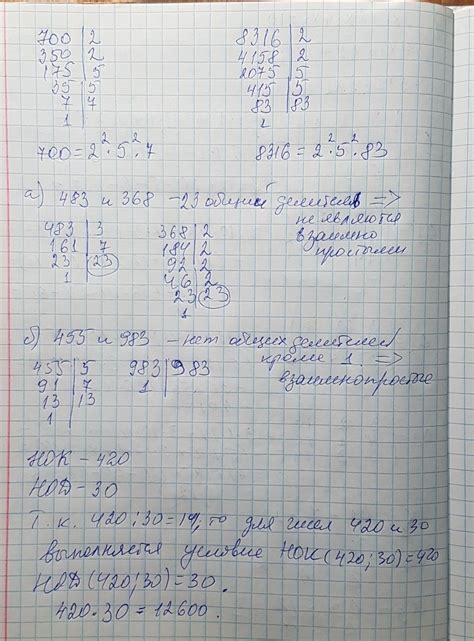 700 | 2 8316 | 2
350 | 2 4158 | 2
175 | 5 2075 | 5
35 | 5 415 | 5
7 | 7 83 | 83
1 1
700 = 2² · 5² · 7 8316 = 2² · 5² · 83
а) 483 и 368 – 23 общий делитель =>
не являются
взаимно
простыми
483 | 3 368 | 2
161 | 7 184 | 2
23 | 23 92 | 2
1 46 | 2
23 | 23
1
б) 455 и 983 – нет общих делителей
кроме 1 =>
взаимнопростые
455 | 5 983 | 983
91 | 7 1
13 | 13
1
НОК – 420
НОД = 30
Т.к. 420 : 30 = 14, то для чисел 420 и 30
выполняется условие НОК (420; 30) = 420
НОД (420; 30) = 30.
420 · 30 = 12600.